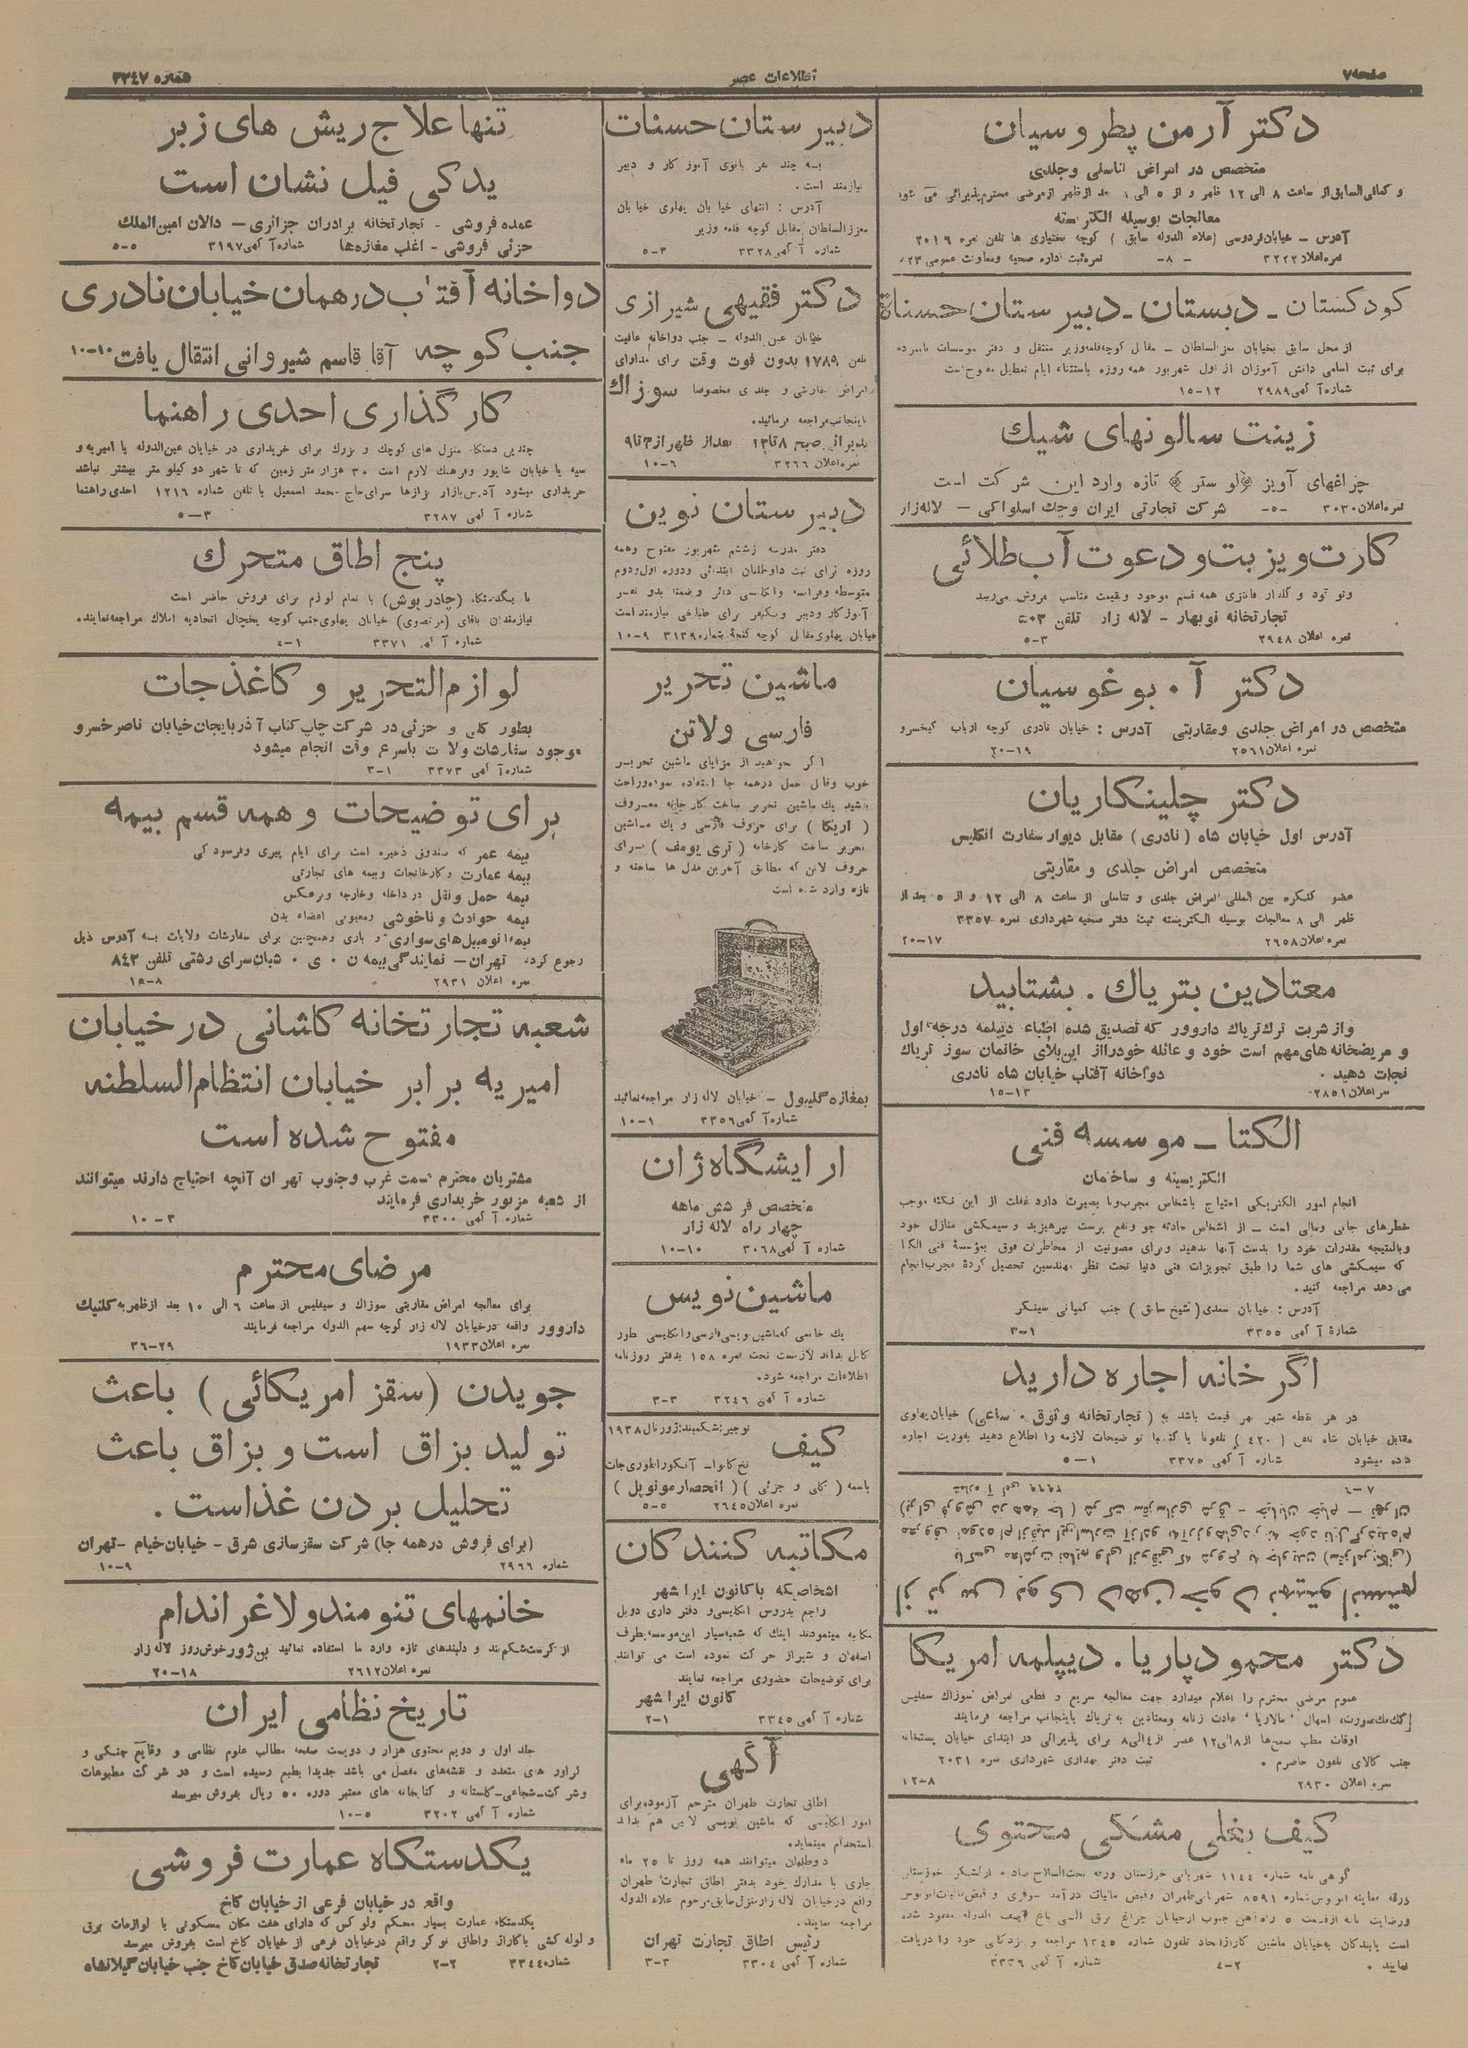 صفحه ۷
اطلاعات عصر
شماره ۳۳۴۷
دکتر آرمن پطروسیان
متخصص در امراض تناسلی و جلدی
و کمافی‌السابق از ساعت ۸ الی ۱۲ ظهر و از ۵ الی ۸ بعد از ظهر از مرضی محترم پذیرائی می شود
معالجات بوسیله الکتریسته
آدرس – خیابان فردوسی (علاء الدوله سابق) کوچه بختیاری ها تلفن نمره ۲۰۱۶
نمره اعلان ۳۲۲۲ – ۸ – نمره ثبت اداره صحیه ومعاونت عمومی
کودکستان - دبستان - دبیرستان حسنات
از محل سابق بخیابان معزالسلطان – مقابل کوچه قلمه وزیر منتقل و دفتر موسسات نامبرده
برای ثبت اسامی دانش آموزان از اول شهریور همه روزه باستثناء ایام تعطیل مفتوح است
شماره آگهی ۲۹۸۹ ۱۲–۱۵
زینت سالونهای شیك
چراغهای آویز «لوستر» تازه وارد این شرکت است
نمره اعلان ۳۰۳۰ –۵– شرکت تجارتی ایران وچك اسلواکی – لاله‌زار
کارت ویزیت و دعوت آب طلائی
تجارتخانه نوبهار – لاله زار
نمره اعلان ۲۹۴۸ ۳–۵
دکتر آ. بوغوسیان
متخصص در امراض جلدی ومقاربتی آدرس : خیابان نادری کوچه ارباب کیخسرو
نمره اعلان ۲۵۶۱ ۱۹–۲۰
دکتر چلینگاریان
آدرس اول خیابان شاه (نادری) مقابل دیوار سفارت انگلیس
متخصص امراض جلدی و مقاربتی
عضو کنگره بین المللی امراض جلدی و تناسلی از ساعت ۸ الی ۱۲ و از ۵ بعد از
ظهر الی ۸ معالجات بوسیله الکتریسته ثبت دفتر صحیه شهرداری نمره ۳۳۵۷
نمره اعلان ۲۶۵۸ ۱۷–۲۰
معتادین بتریاك . بشتابید
و از شربت ترك تریاك داروور که تصدیق شده اطباء دیپلمه درجه اول
و مریضخانه های مهم است خود و عائله خود را از این بلای خانمان سوز تریاك
نجات دهید . دواخانه آفتاب خیابان شاه نادری
۱۳–۱۵
الکتا - موسسه فنی
الکتریسیته و ساختمان
انجام امور الکتریکی احتیاج باشخاص مجرب وبا بصیرت دارد غفلت از این نکته موجب
خطرهای جانی ومالی است – از اشخاص حادثه جو ونفع پرست بپرهیزید و سیمکشی منازل خود
وبالنتیجه مقدرات خود را بدست آنها ندهید وبرای مصونیت از مخاطرات فوق بمؤسسهٔ فنی الکتا
که سیمکشی های شما را طبق تجویزات فنی دنیا تحت نظر مهندسین تحصیل کردهٔ مجرب انجام
می دهد مراجعه کنید.
آدرس : خیابان سعدی (شیخ سابق) جنب کمپانی سینگر
شمارهٔ آگهی ۳۳۵۵ ۱–۳
اگر خانه اجاره دارید
در هر نقطه شهر بهر قیمت باشد به (تجارتخانه وثوق . ساعی) خیابان پهلوی
مقابل خیابان شاه تلفن (۴۲۰) تلفوناً یا کتباً توضیحات لازمه را اطلاع دهید بفوریت اجاره
داده میشود شماره آگهی ۳۳۷۵ ۱–۵
(برای فروش در همه جا) شرکت سقزسازی شرق – خیابان خیام – تهران
دکتر محمود پاریا . دیپلمه امریکا
عموم مرضی محترم را اعلام میدارد جهت معالجه سریع و قطعی امراض سوزاك سفلیس
كك‌مك صورت، اسهال ، مالاریا ، عادت زنانه ومعتادین به تریاك باینجانب مراجعه فرمایند
اوقات مطب صبح‌ها از ۸ الی ۱۲ عصر از ۴ الی ۸ برای پذیرائی در ابتدای خیابان پستخانه
جنب کالای تلفون حاضرم . ثبت دفتر بهداری شهرداری نمره ۲۰۳۱
نمره اعلان ۲۹۳۰ ۸–۱۲
کیف بغلی مشکی محتوی
شماره آگهی ۳۳۳۶ ۲–۴
دبیرستان حسنات
به چند نفر بانوی آموزگار و دبیر
نیازمند است .
آدرس : انتهای خیابان پهلوی خیابان
معزالسلطان مقابل کوچه قلمه وزیر
شماره آگهی ۳۳۲۸ ۳–۵
دکتر فقیهی شیرازی
خیابان عین الدوله – جنب دواخانه عافیت
تلفن ۱۷۸۵ بدون فوت وقت برای مداوای
امراض مقاربتی و جلدی مخصوصا سوزاك
باینجانب مراجعه فرمائید.
نمره اعلان ۳۲۶۶ ۶–۱۰
دبیرستان نوین
دفتر مدرسه از ششم شهریور مفتوح وهمه
روزه برای ثبت داوطلبان ابتدائی ودوره اول ودوم
خیابان پهلوی مقابل کوچه گنجهٔ شماره ۳۱۳۹ ۹–۱۰
ماشین تحریر
فارسی ولاتن
اگر بخواهید از مزایای ماشین تحریر
خوب وقابل حمل در همه جا استفاده نموده وراحت
باشید یك ماشین تحریر ساخت کارخانه معروف
(اریکا) برای حروف فارسی و یك ماشین
تحریر ساخت کارخانه (تری یومف) برای
حروف لاتن که مطابق آخرین مدل ها ساخته و
تازه وارد شده است
بمغازه گلیبول – خیابان لاله زار مراجعه نمائید
شماره آگهی ۳۳۵۶ ۱–۱۰
آرایشگاه ژان
متخصص فر شش ماهه
چهار راه لاله زار
شماره آگهی ۳۰۶۸ ۱۰–۱۰
ماشین نویس
یك خانمی که ماشین نویسی فارسی وانگلیسی بطور
کامل بداند لازمست تحت نمره ۱۵۸ بدفتر روزنامه
اطلاعات مراجعه شود.
شماره آگهی ۳۲۴۶ ۳–۳
کیف
باسمه (کلی و جزئی) (انحصار مونوپل)
نمره اعلان ۲۶۴۵ ۵–۵
مکاتبه کنندگان
اشخاصیکه با کانون ایرانشهر
راجع بدروس انگلیسی و دفتر داری دوبل
مکاتبه مینمودند اینك که شعبه سیار این موسسه بطرف
اصفهان و شیراز حرکت نموده است می توانند
برای توضیحات حضوری مراجعه نمایند
کانون ایرانشهر
شماره آگهی ۳۳۴۵ ۱–۲
آگهی
اطاق تجارت طهران مترجم آزموده برای
امور انگلیسی که ماشین نویسی لاتین هم بداند
استخدام مینماید.
داوطلبان میتوانند همه روز تا ۲۵ ماه
جاری با مدارك خود بدفتر اطاق تجارت طهران
واقع در خیابان لاله زار منزل سابق مرحوم علاء الدوله
مراجعه نمایند.
رئیس اطاق تجارت تهران
شماره آگهی ۳۳۰۴ ۳–۳
تنها علاج ریش های زبر
یدکی فیل نشان است
عمده فروشی – تجارتخانه برادران جزائری – دالان امین الملك
جزئی فروشی – اغلب مغازه‌ها شماره آگهی ۳۱۹۷ ۵–۵
دواخانه آفتاب در همان خیابان نادری
جنب کوچه آقا قاسم شیروانی انتقال یافت ۱۰–۱۰
کارگذاری احدی راهنما
چندین دستگاه منزل های کوچك و بزرك برای خریداری در خیابان عین‌الدوله یا امیریه و
سپه یا خیابان شاپور وفرهنگ لازم است ۳۰ هزار متر زمین که تا شهر دو کیلو متر بیشتر نباشد
خریداری میشود آدرس بازار بزازها سرای حاج محمد اسمعیل با تلفن شماره ۱۲۱۶ احدی راهنما
شماره آگهی ۳۲۸۷ ۳–۵
پنج اطاق متحرك
با یکدستگاه (چادرپوش) با تمام لوازم برای فروش حاضر است
نیازمندان باقای (مرتضوی) خیابان پهلوی جنب کوچه یخچال اتحادیه املاك مراجعه نمایند.
شماره آگهی ۳۳۷۱ ۱–۴
لوازم التحریر و کاغذجات
بطور کلی و جزئی در شرکت چاپ کتاب آذربایجان خیابان ناصر خسرو
موجود سفارشات ولایات باسرع وقت انجام میشود
شماره آگهی ۳۳۷۳ ۱–۳
برای توضیحات و همه قسم بیمه
بیمه عمر که صندوق ذخیره است برای ایام پیری وفرسودگی
بیمه عمارت وکارخانجات وبیمه های تجارتی
بیمه حمل ونقل در داخله وخارجه وبرعکس
بیمه حوادث و ناخوشی ومعیوبی اعضاء بدن
بیمه اتومبیل های سواری و باری وهمچنین برای سفارشات ولایات بسه آدرس ذیل
رجوع کرد. تهران – نمایندگی بیمه ن . ی . شبان سرای رشتی تلفن ۸۴۲
نمره اعلان ۲۹۳۱ ۸–۱۵
شعبه تجارتخانه کاشانی در خیابان
امیریه برابر خیابان انتظام السلطنه
مفتوح شده است
مشتریان محترم قسمت غرب وجنوب تهران آنچه احتیاج دارند میتوانند
از شعبه مزبور خریداری فرمایند
شماره آگهی ۳۳۰۰ ۳–۱۰
مرضای محترم
برای معالجه امراض مقاربتی سوزاك و سیفلیس از ساعت ۶ الی ۱۰ بعد از ظهر به کلنیك
داروور واقعه در خیابان لاله زار کوچه سهم الدوله مراجعه فرمایند
نمره اعلان ۱۹۳۳ ۲۹–۳۶
جویدن (سقز امریکائی) باعث
تولید بزاق است و بزاق باعث
تحلیل بردن غذاست .
(برای فروش در همه جا) شرکت سقز سازی شرق – خیابان خیام – تهران
شماره ۲۹۶۶ ۹–۱۰
خانمهای تنومند و لاغر اندام
از کرست شکم‌بند و دلبندهای تازه وارد ما استفاده نمائید بن‌ژور خوش‌روز لاله زار
نمره اعلان ۲۶۱۲ ۱۸–۲۰
تاریخ نظامی ایران
جلد اول و دویم محتوی هزار و دویست صفحه مطالب علوم نظامی و وقایع جنگی و
گراور های متعدد و نقشه‌های مفصل می باشد جدیدا بطبع رسیده است و در شرکت مطبوعات
وشرکت شجاعی – گلستانه و کتابخانه های معتبر دوره ۵۰ ریال بفروش میرسد
شماره آگهی ۳۲۰۲ ۵–۱۰
یکدستگاه عمارت فروشی
واقع در خیابان فرعی از خیابان کاخ
یکدستگاه عمارت بسیار محکم ولوکس که دارای هفت مکان مسکونی با لوازمات برق
و لوله کشی با گاراژ واطاق نوکر واقع در خیابان فرعی از خیابان کاخ است بفروش میرسد
شماره ۳۳۴۴ ۲–۲ تجارتخانه صدقی خیابان کاخ جنب خیابان گیلانشاه